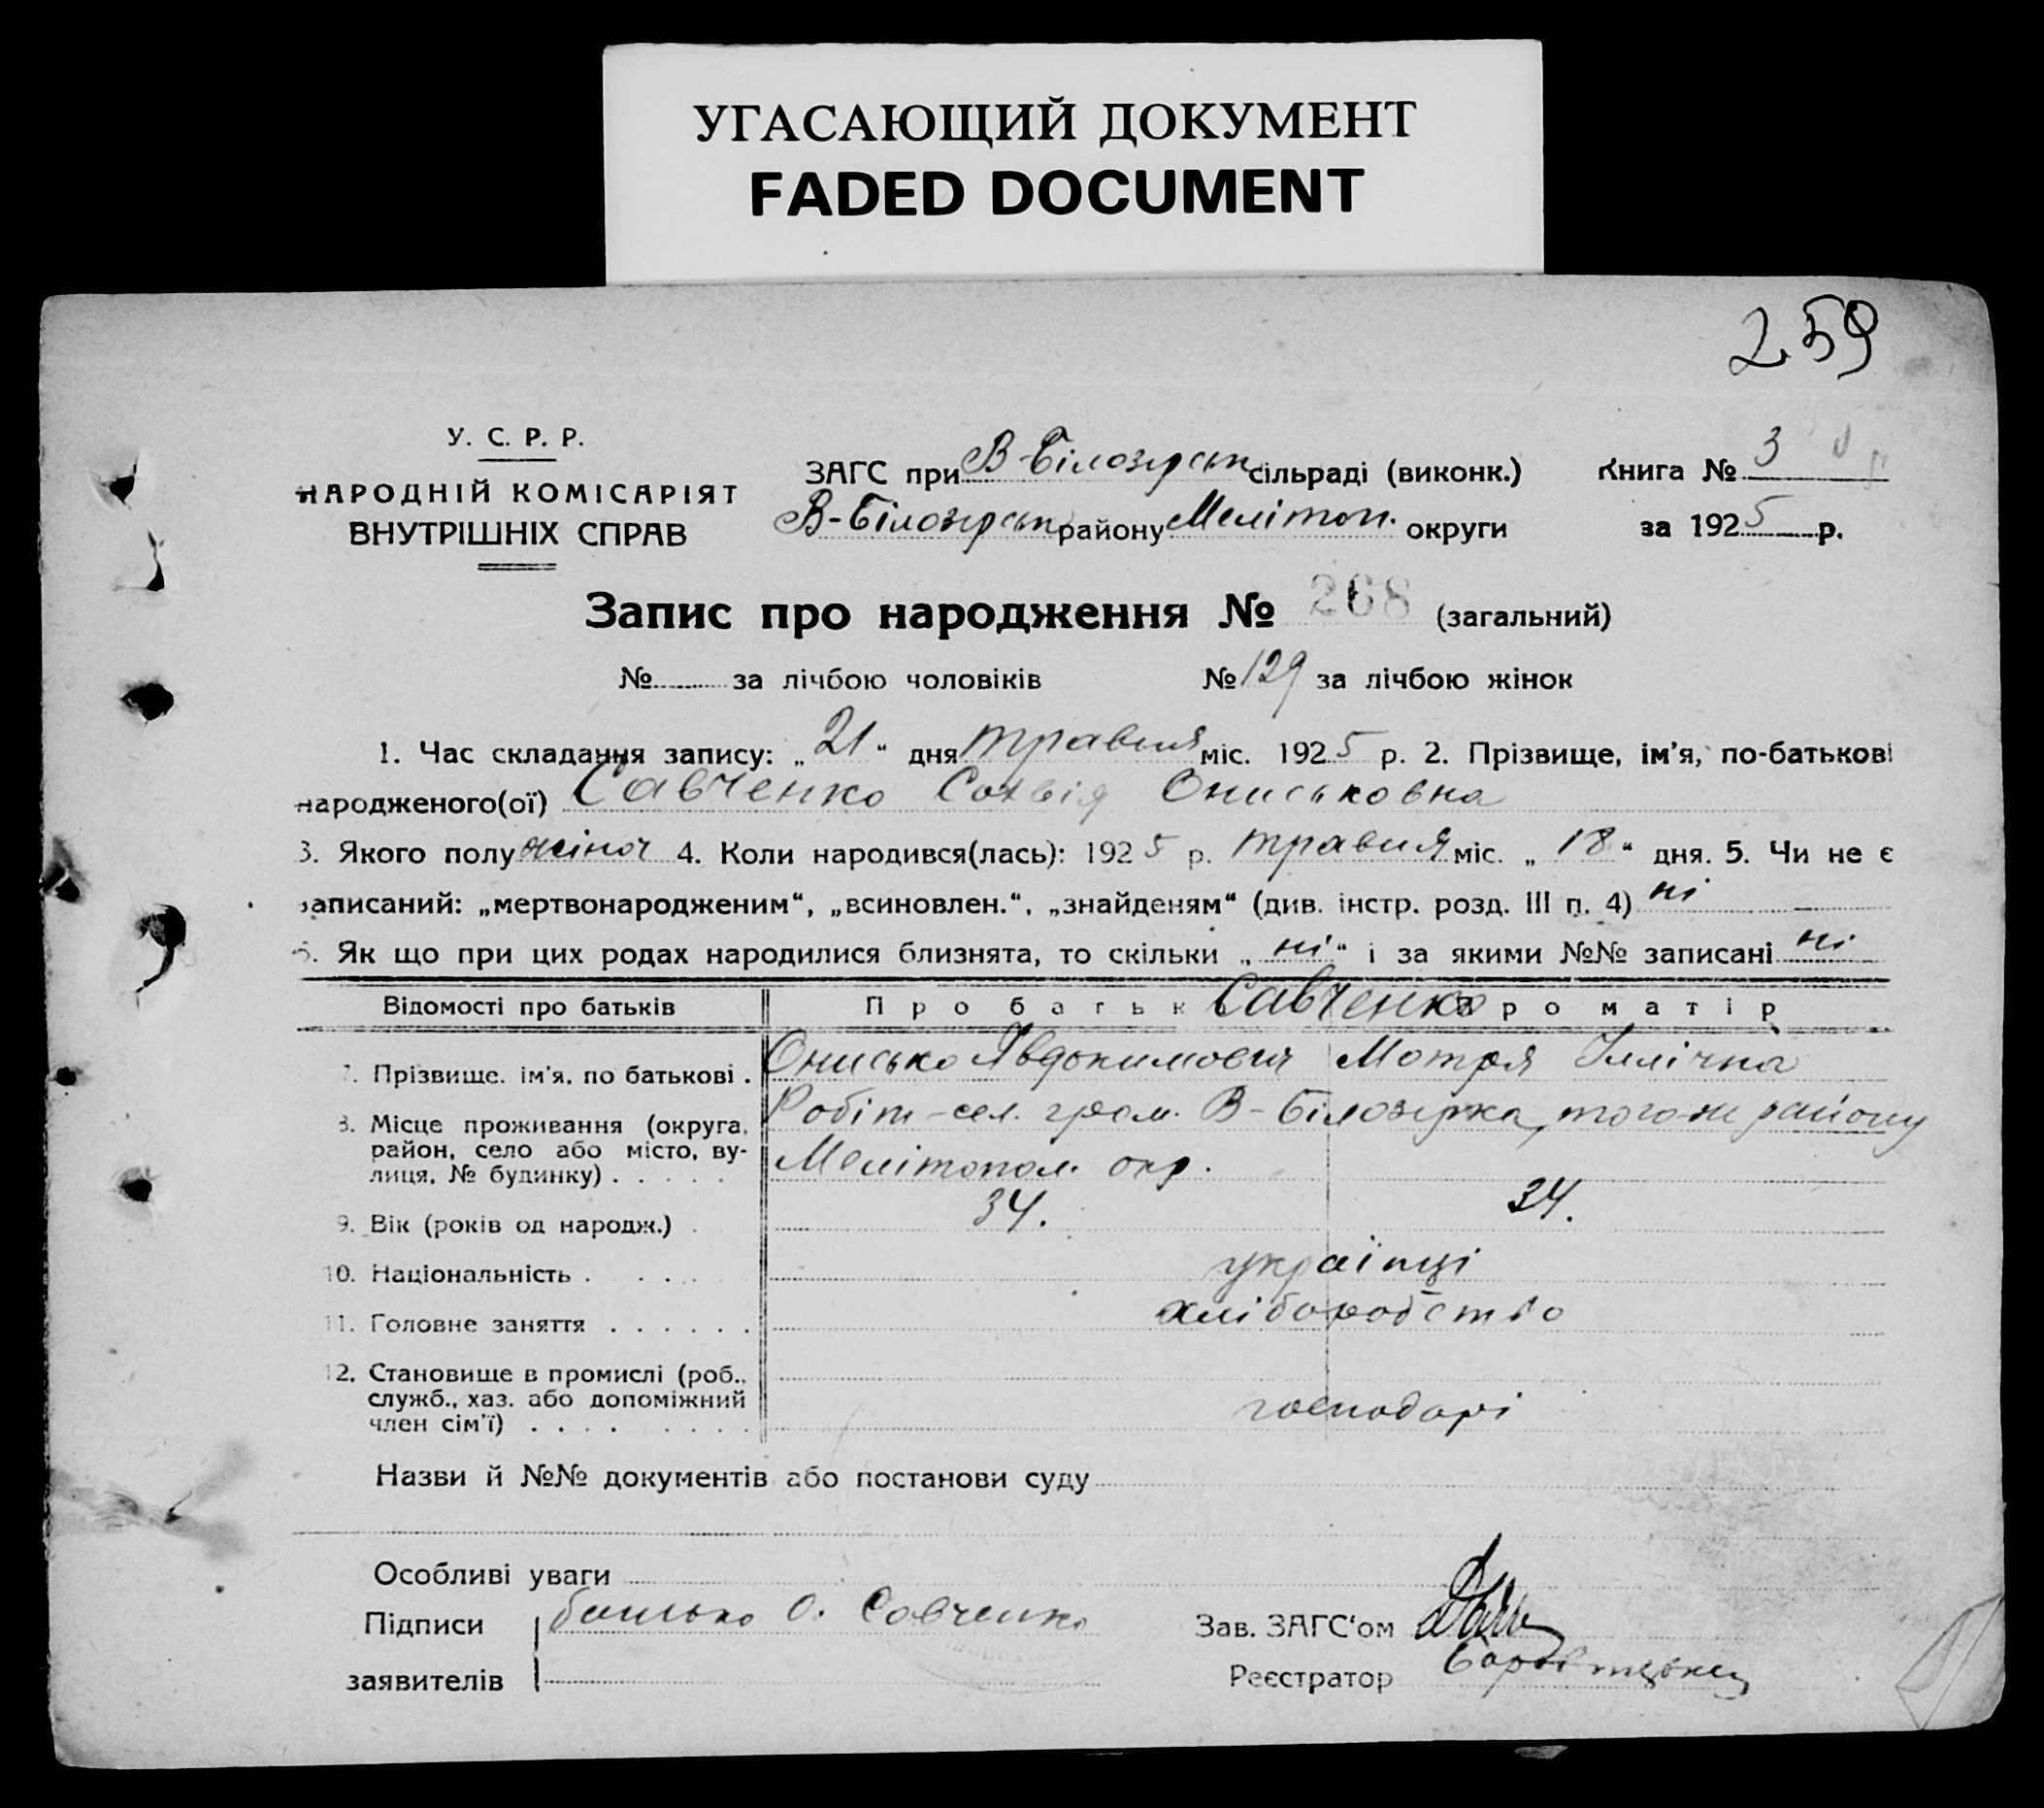 УГАСАЮЩИЙ ДОКУМЕНТ
FADED DOCUMENT
259
У. С. Р. Р.
НАРОДНІЙ КОМІСАРІЯТ
ВНУТРІШНІХ СПРАВ
ЗАГС при В-Білозерськ сільраді (виконк.)
В-Білозерськ району Мелітоп. округи
Книга № 3
за 1925 р.
Запис про народження № 268 (загальний)
№ за лічбою чоловіків № 129 за лічбою жінок
1. Час складання запису: „21“ дня травня міс. 1925 р. 2. Прізвище, ім'я, по-батькові
народженого(ої) Савченко Софія Ониськовна
3. Якого полу жіноч 4. Коли народився(лась): 1925 р. травня міс. „18“ дня. 5. Чи не є
записаний: „мертвонародженим“, „всиновлен.“, „знайденям“ (див. інстр. розд. III п. 4) ні
6. Як що при цих родах народилися близнята, то скільки „ні“ і за якими №№ записані ні
Відомості про батьків Про батьк Савченко Про матір
7. Прізвище, ім'я, по батькові . Онисько Явдокимович Мотря Іллічна
8. Місце проживання (округа, район, село або місто, вулиця, № будинку) . . . . . Робіт-сел. гром. В-Білозерка, того-ж району
Мелітопол. окр.
9. Вік (років од народж.) . 34. 34.
10. Національність . . . . . українці
11. Головне заняття . . . . . . хліборобство
12. Становище в промислі (роб.,
служб., хаз. або допоміжний
член сім'ї) . . . . . . . . господарі
Назви й №№ документів або постанови суду
Особливі уваги
Підписи батько О. Савченко
заявителів
Зав. ЗАГС'ом
Реєстратор